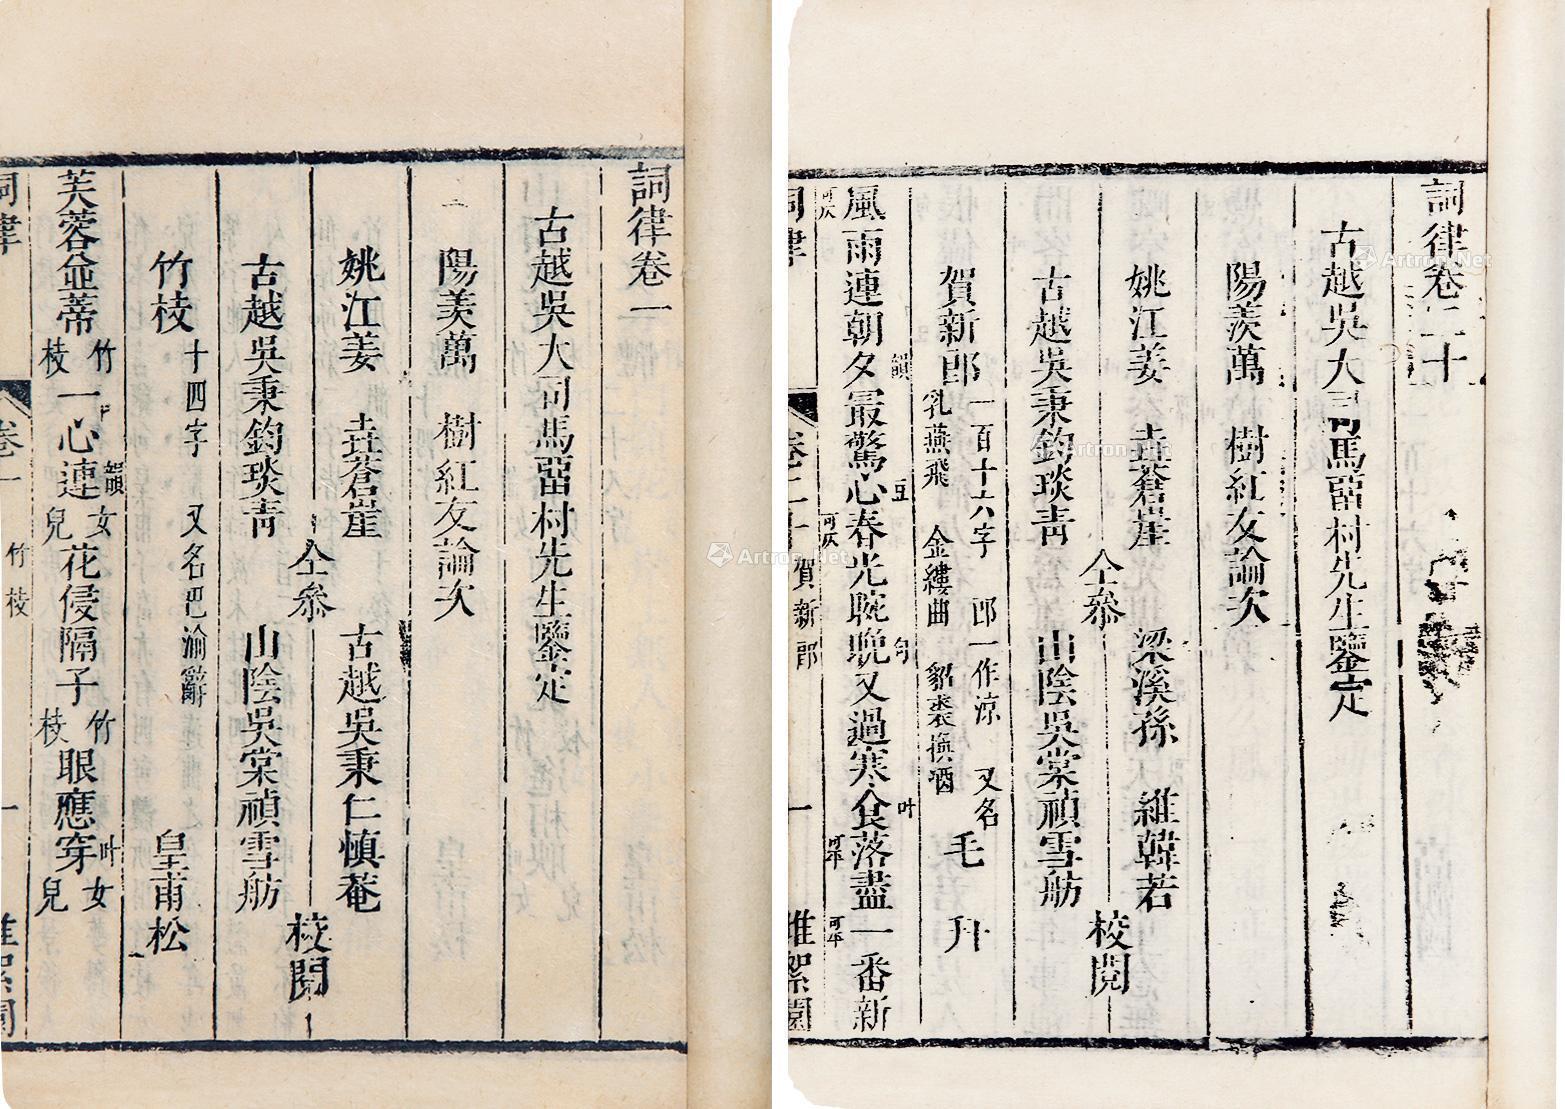 詞律卷一
古越吳大司馬留村先生鑒定
陽羡萬　樹紅友論次
姚江姜　垚蒼崖
古越吳秉仁慎菴
仝叅
古越吳秉鈞琰青
山陰吳棠禎雪舫
校閱
竹枝　十四字　又名巴渝辭　皇甫松
芙蓉並蒂竹枝一心連韻女兒花侵隔子竹枝眼應穿叶女兒
詞律　卷一　竹枝　一　堆絮園
詞律卷二十
古越吳大司馬留村先生鑒定
陽羡萬　樹紅友論次
姚江姜　垚蒼崖
梁溪孫　維韓若
仝叅
古越吳秉鈞琰青
山陰吳棠禎雪舫
校閱
賀新郎　一百十六字　郎一作涼　又名乳燕飛　金縷曲　貂裘換酒　毛　幵
風雨連朝夕韻最驚心豆春光晼晚句又過寒食叶落盡一番新
可仄　可仄　可平　可平
詞律　卷二十　賀新郎　一　堆絮園
Artron.Net
Artron.Net
Artron.Net